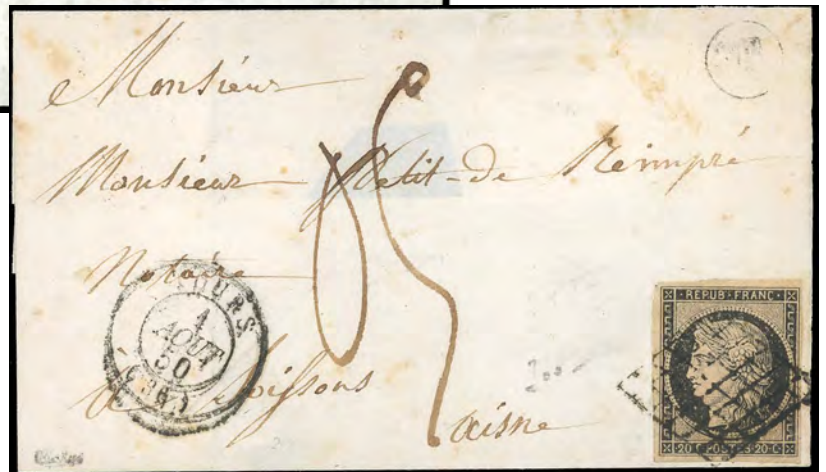 Monsieur
Monsieur Petit-de Reimpré
Notaire
à Soissons
aisne
TOURS
1
AOUT
50
REPUB·FRANC·
20·C·POSTES·20·C·